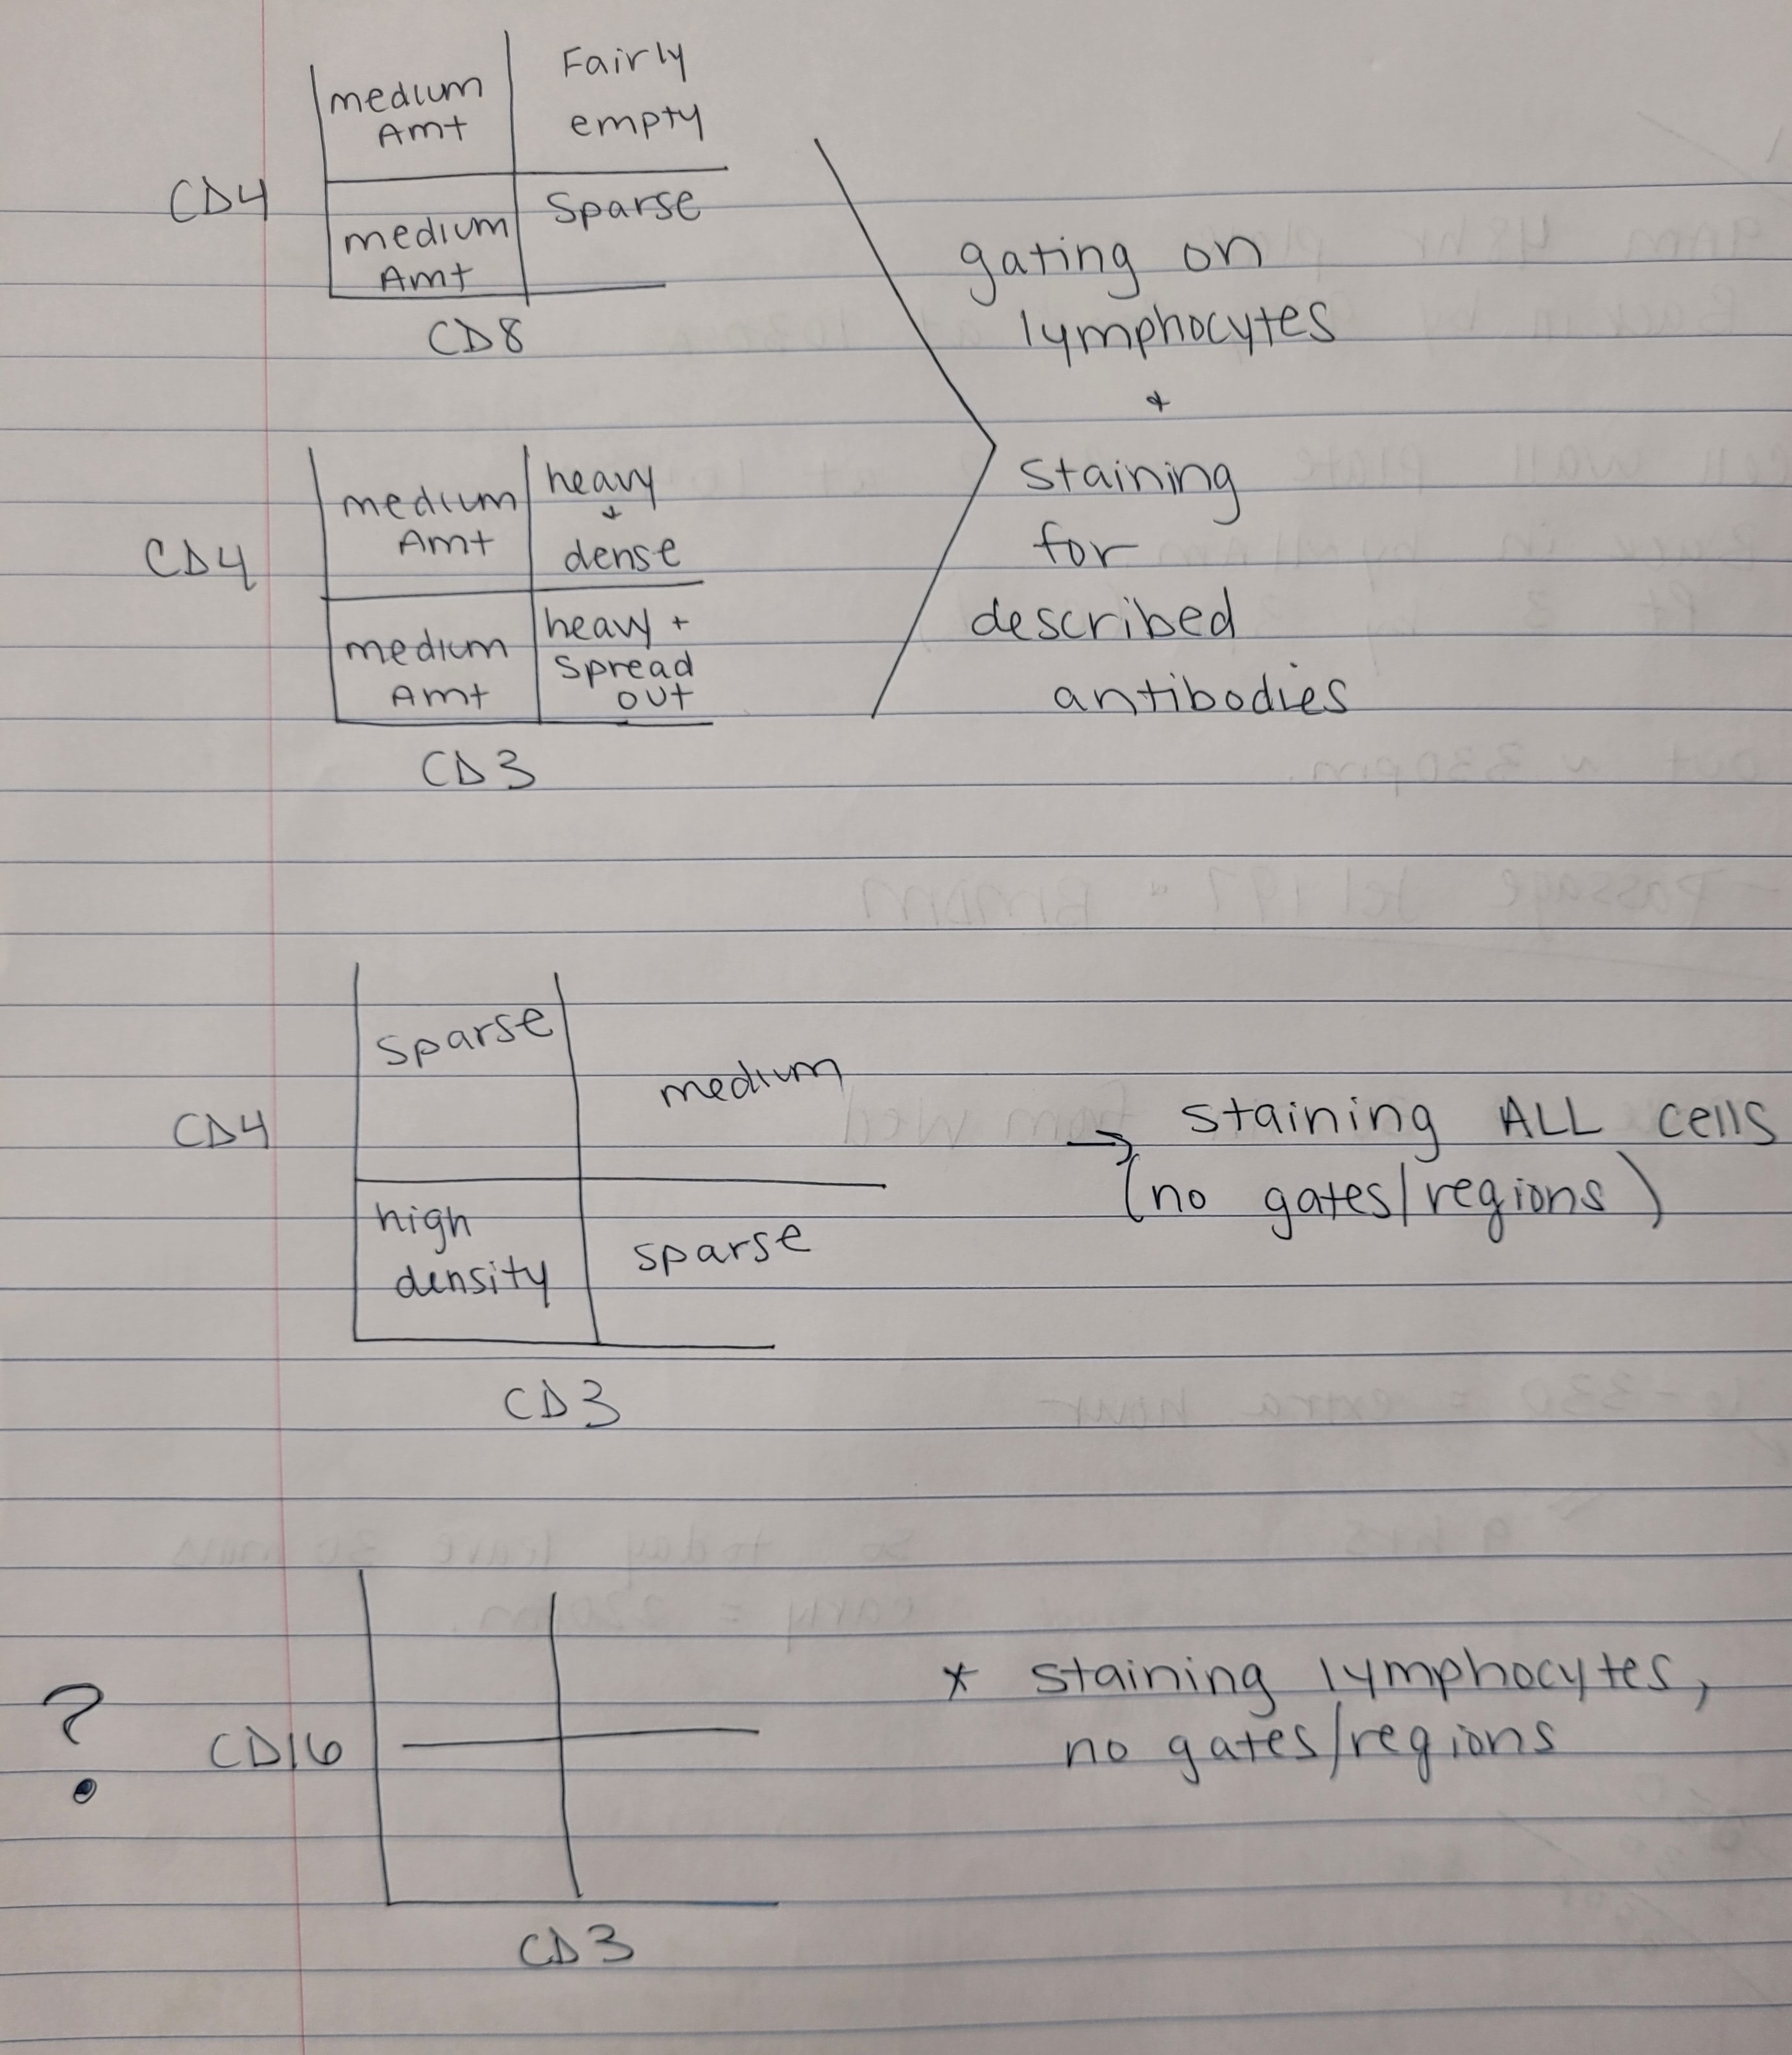 medium
Amt
Fairly
empty
CD4
medium
Amt
Sparse
CD8
medium
Amt
heavy
+
dense
CD4
medium
Amt
heavy +
spread
out
CD3
gating on
lymphocytes
+
staining
for
described
antibodies
sparse
medium
CD4
high
density
sparse
CD3
→ staining ALL cells
(no gates/regions)
?
CD16
CD3
* staining lymphocytes,
no gates/regions
out ~ 330pm.